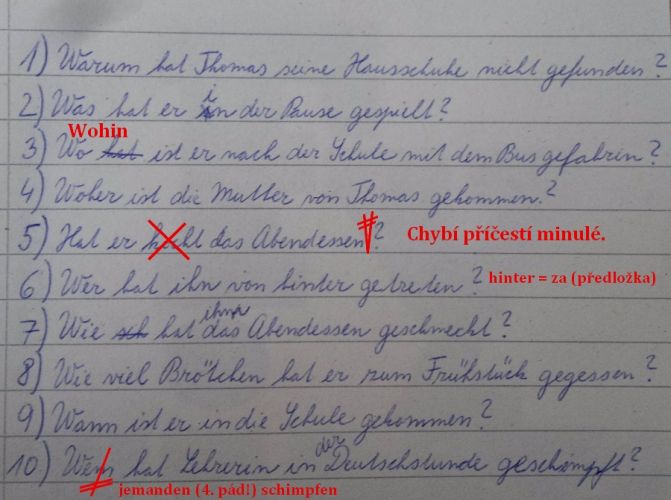 1) Warum hat Thomas seine Hausschuhe nicht gefunden?
2) Was hat er in der Pause gespielt?
Wohin
3) Wo hat ist er nach der Schule mit dem Bus gefahrin?
4) Woher ist die Mutter von Thomas gekommen?
5) Hat er kocht das Abendessen? Chybí příčestí minulé.
6) Wer hat ihn von hinter getreten? hinter = za (předložka)
ihm
7) Wie sch hat das Abendessen geschmeckt?
8) Wie viel Brötchen hat er zum Frühstück gegessen?
9) Wann ist er in die Schule gekommen?
der
10) Wem hat Lehrerin in Deutschstunde geschimpft?
jemanden (4. pád!) schimpfen